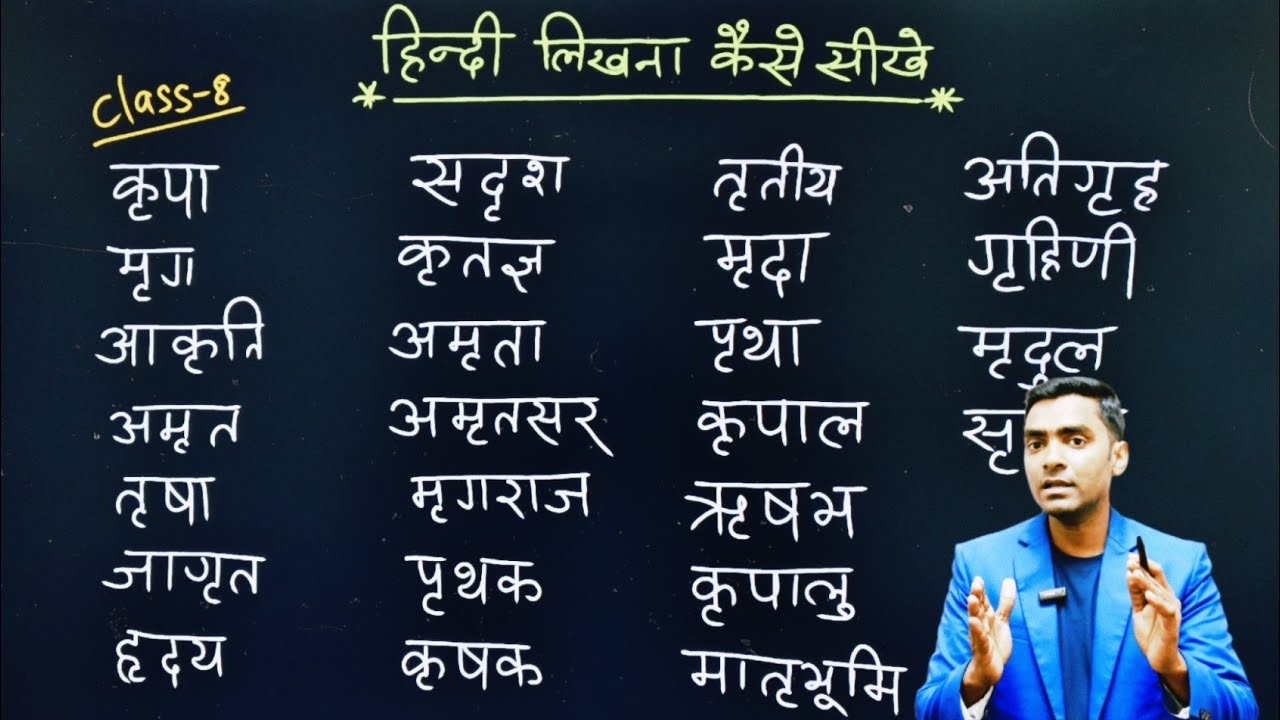 हिन्दी लिखना कैसे सीखे
Class-8
कृपा सदृश तृतीय अतिगृह
मृग कृतज्ञ मृदा गृहिणी
आकृति अमृता पृथा मृदुल
अमृत अमृतसर् कृपाल
तृषा मृगराज ऋषभ
जागृत पृथक कृपालु
हृदय कृषक मातृभूमि